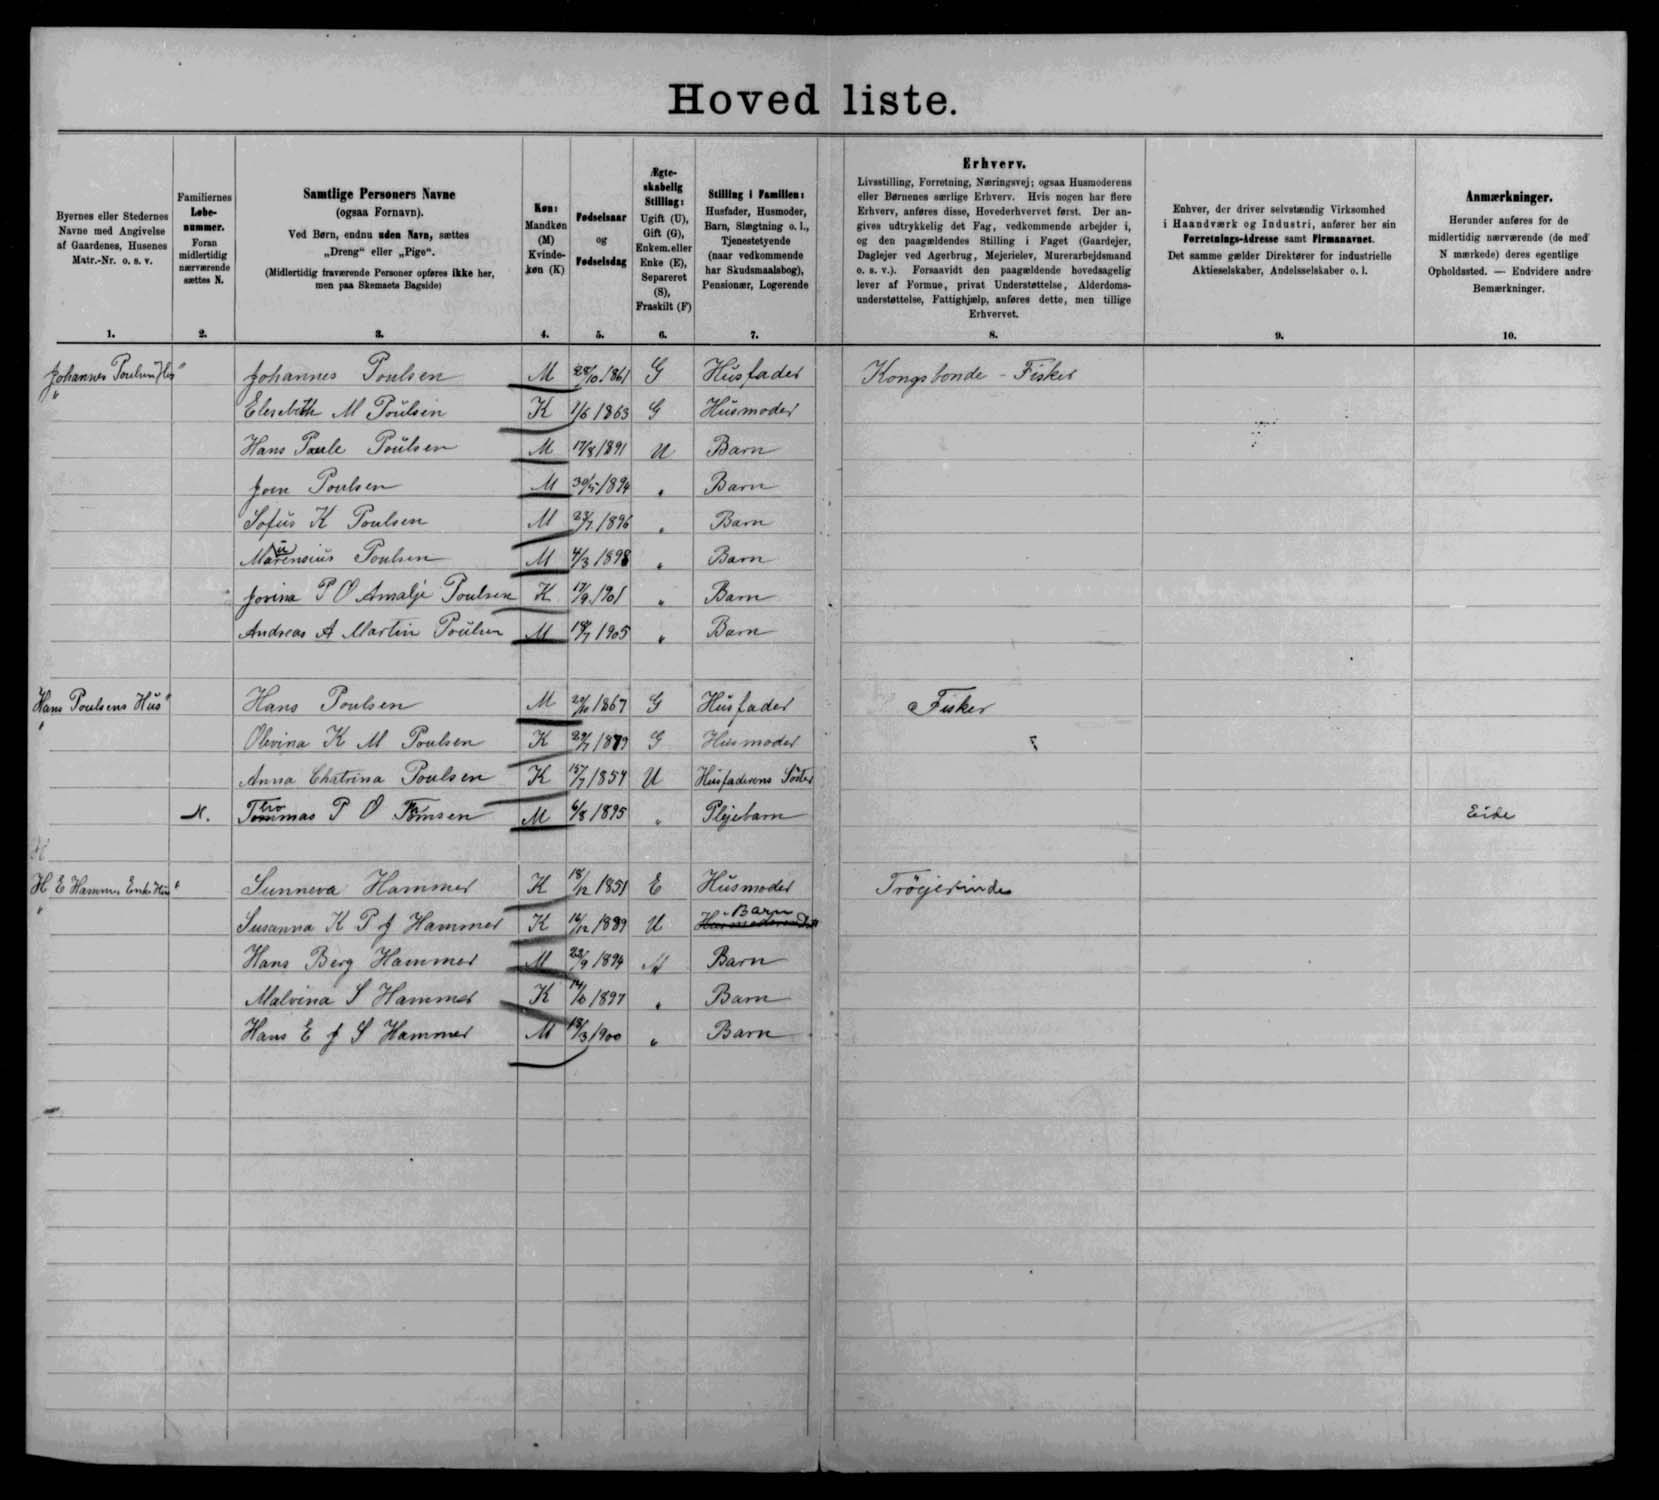 Hovedliste.
Byernes eller Stedernes Navne med Angivelse af Gaardenes, Husenes Matr.-Nr. o. s. v.
Familiernes Løbenummer. Foran midlertidig nærværende sættes N.
Samtlige Personers Navne (ogsaa Fornavn). Ved Børn, endnu uden Navn, sættes „Dreng“ eller „Pige“. (Midlertidig fraværende Personer opføres ikke her, men paa Skemaets Bagside)
Køn: Mandkøn (M) Kvindekøn (K)
Fødselsaar og Fødselsdag
Ægteskabelig Stilling: Ugift (U), Gift (G), Enkem. eller Enke (E), Separeret (S), Fraskilt (F)
Stilling i Familien: Husfader, Husmoder, Barn, Slægtning o. l., Tjenestetyende (naar vedkommende har Skudsmaalsbog), Pensionær, Logerende
Erhverv. Livsstilling, Forretning, Næringsvej; ogsaa Husmoderens eller Børnenes særlige Erhverv. Hvis nogen har flere Erhverv, anføres disse, Hovederhvervet først. Der angives udtrykkelig det Fag, vedkommende arbejder i, og den paagældendes Stilling i Faget (Gaardejer, Daglejer ved Agerbrug, Mejerielev, Murerarbejdsmand o. s. v.). Forsaavidt den paagældende hovedsagelig lever af Formue, privat Understøttelse, Alderdomsunderstøttelse, Fattighjælp, anføres dette, men tillige Erhvervet.
Enhver, der driver selvstændig Virksomhed i Haandværk og Industri, anfører her sin Forretnings-Adresse samt Firmanavnet. Det samme gælder Direktører for industrielle Aktieselskaber, Andelsselskaber o. l.
Anmærkninger. Herunder anføres for de midlertidig nærværende (de med N mærkede) deres egentlige Opholdssted. — Endvidere andre Bemærkninger.
1. 2. 3. 4. 5. 6. 7. 8. 9. 10.
Johannes Poulsens Johannes Poulsen M 28/10 1861 G Husfader Kongsbonde - Fisker
Elesebith M Poulsen K 1/6 1863 G Husmoder
Hans Paule Poulsen M 17/8 1891 U Barn
Joen Poulsen M 30/5 1894 " Barn
Sofus K Poulsen M 23/7 1896 " Barn
Poulsen M 4/3 1898 " Barn
Jovina P O Amalje Poulsen K 17/9 1901 " Barn
Andreas A Martin Poulsen M 1905 " Barn
Hans Poulsens Hus" Hans Poulsen M 1867 G Husfader Fisker
Olevina K M Poulsen K 29/7 1879 G Husmoder
Anna Chatrina Poulsen K 15/7 1857 U Husfaderens Söster
N. P O M 6/8 1895 " Plejebarn Eide
H
H E Hammers Enkes Hus" Sunneva Hammer K 18/12 1851 E Husmoder Tröjebinde
Susanna K P J Hammer K 16/12 1889 U Barn
Hans Berg Hammer M 23/9 1894 Barn
Malvina S Hammer K 1897 " Barn
Hans E J S Hammer M 18/3 1900 " Barn